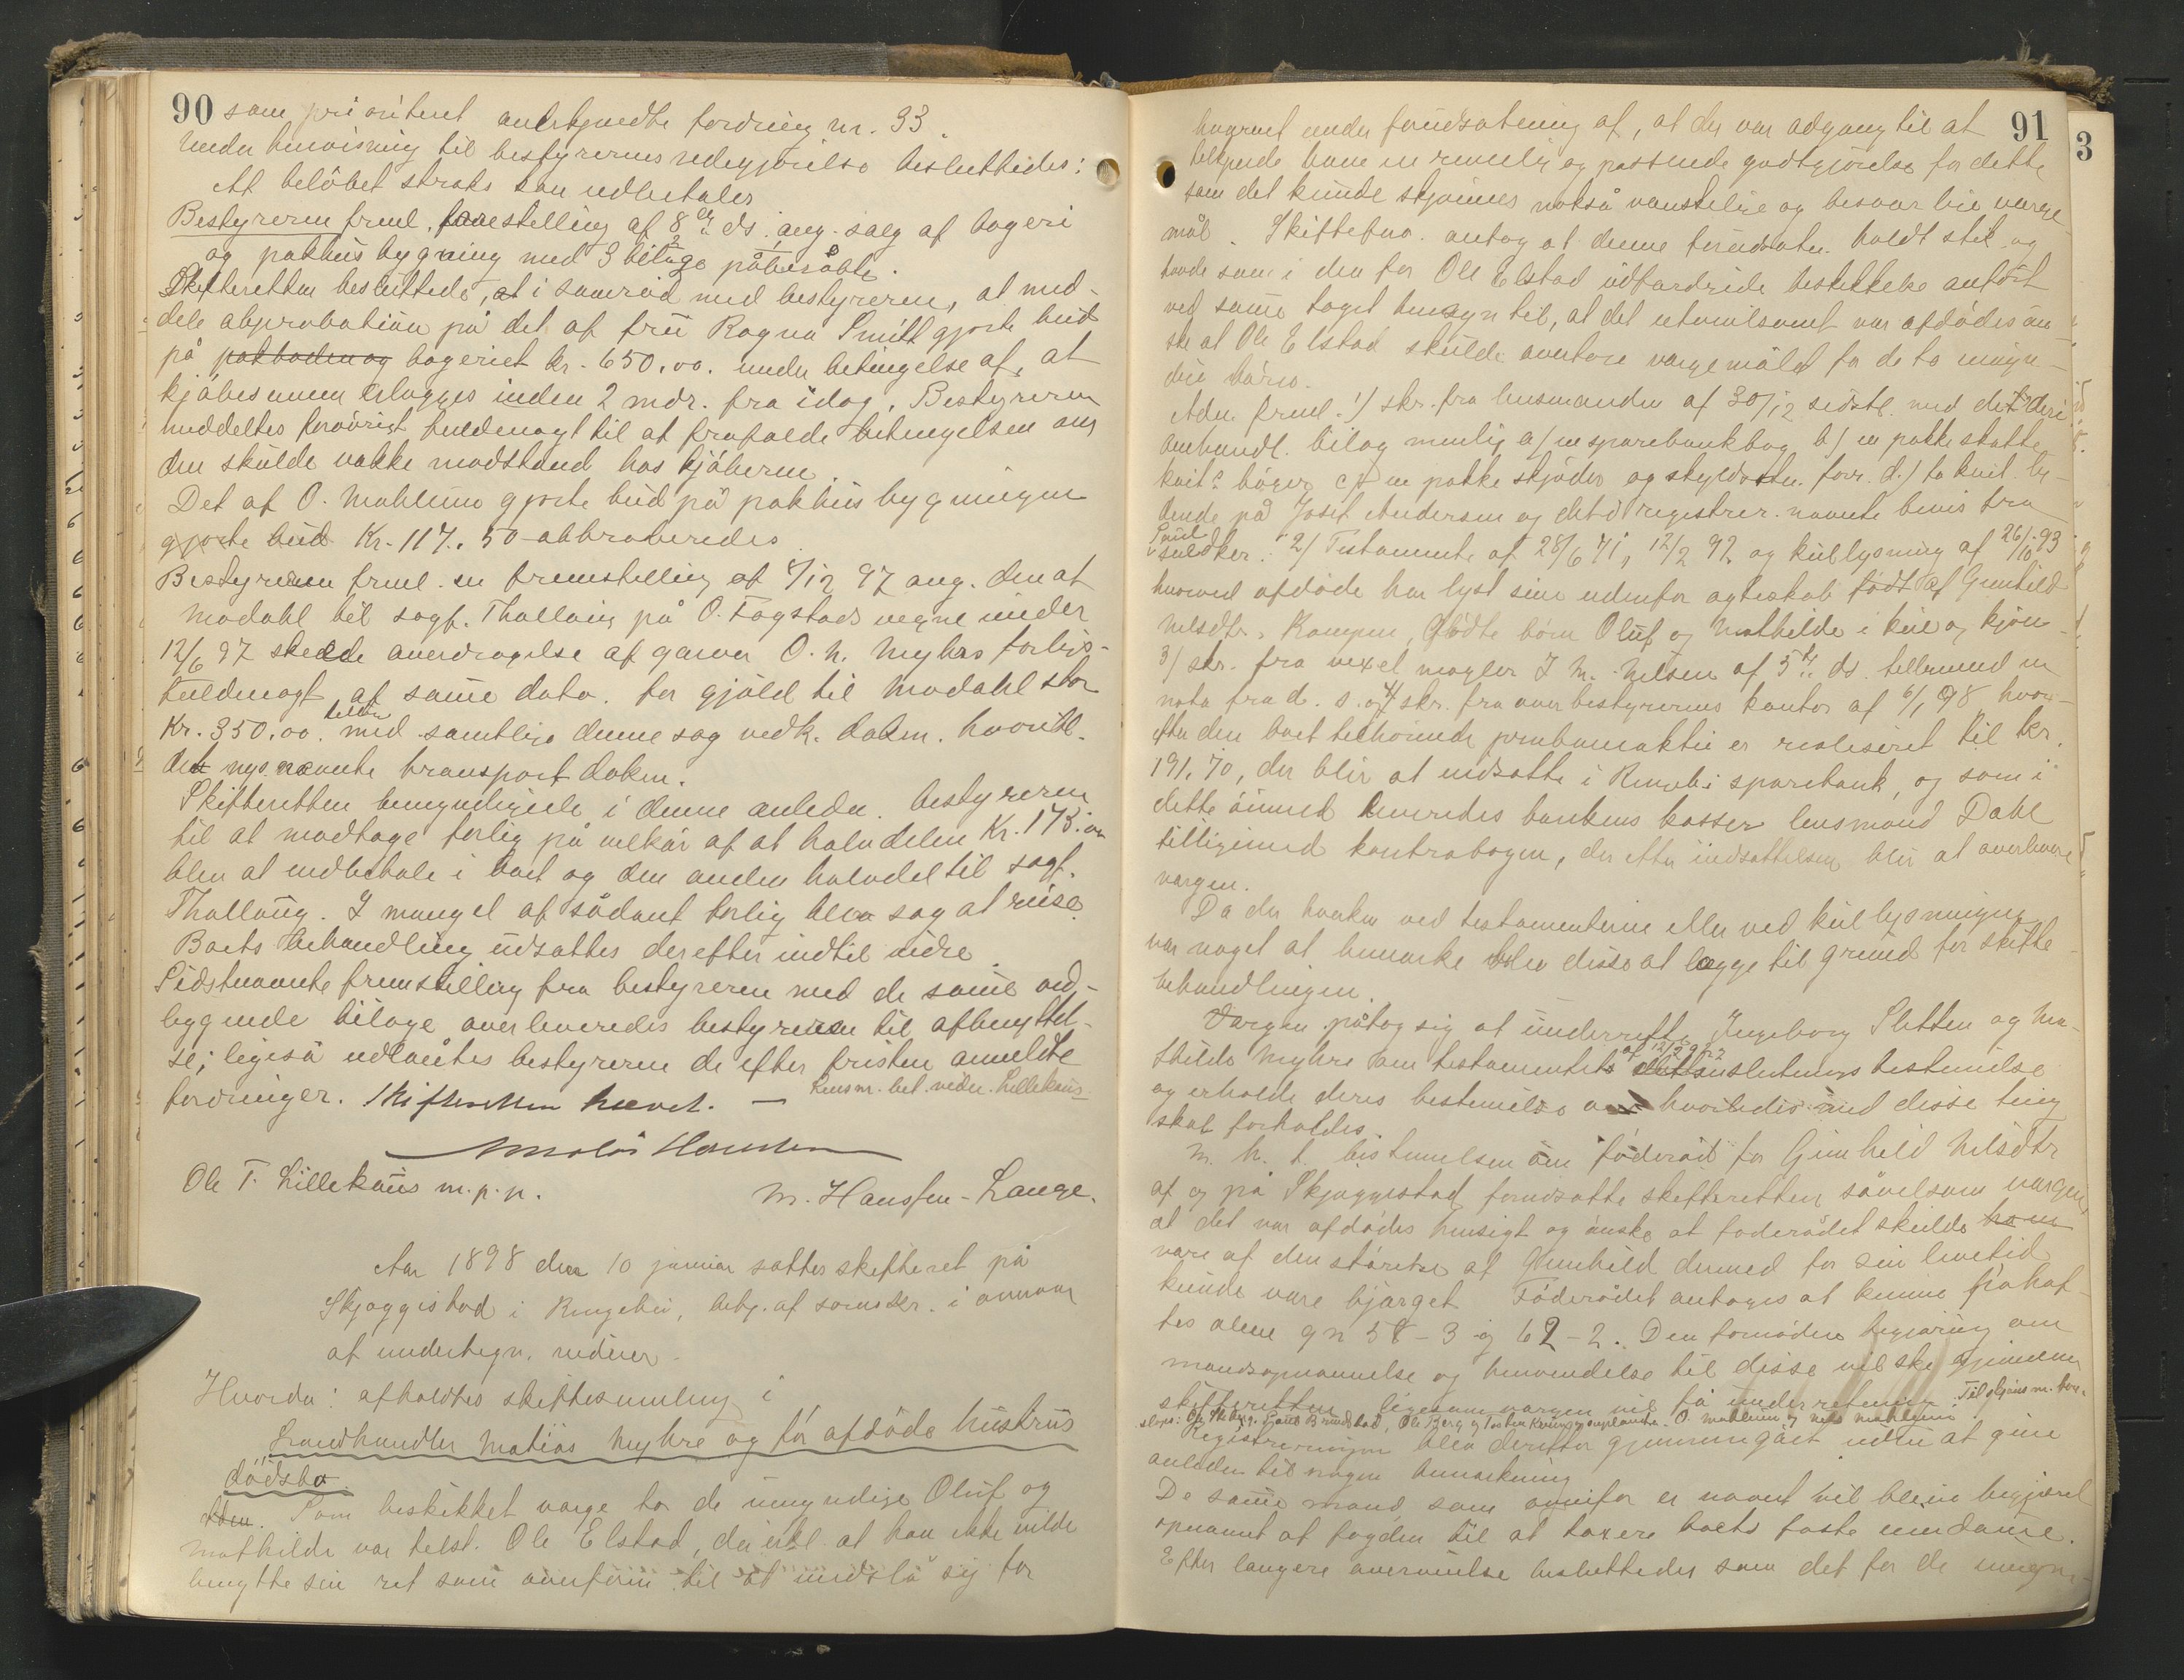 90 som prioriteret anerkjendte fordring nr. 33.
Under henvisning til bestyrerens redegjörelse besluttedes:
At belöbet straks kan udbetales
Bestyreren freml. forestilling af 8de ds. ang. salg af bageri
og pakhusbygning med 3 bilage påberåbte.
Skifteretten besluttede, at i samråd med bestyreren, at med-
dele approbation på det af fru Ragna Smitt gjorte bud
på pakboden og bageriet kr. 650.00. under betingelse af, at
kjöbesummen erlægges inden 2 mdr. fra idag. Bestyreren
meddeltes forövrigt fuldmagt til at frafalde betingelsen om
den skulde vække modstand hos kjöberen.
Det af O. Mahlum gjorte bud på pakhusbygningen
gjorte bud Kr. 117.50 abbroberedes
Bestyreren freml. en fremstilling af 8/12 97 ang. den af
Modahl til sagf. Thallaug på O. Fogstads vegne under
12/6 97 skeede overdragelse af garver O. N. Myhres forligs-
fuldmagt af samme dato. for gjæld til Modahl stor
Kr. 350.00. med samtlige denne sag vedk. dokm. hvoribl.
det nys nævnte transport dokm.
Skifteretten bemyndigede i denne anledn. bestyreren
til at modtage forlig på vilkår af at halvdelen Kr. 175.00
blev at indbetale i boet og den anden halvdel til sagf.
Thallaug. I mangel af sådant forlig blev sag at reise.
Boets behandling udsattes derefter indtil videre.
Sidstnævnte fremstilling fra bestyreren med de samme ved-
liggende bilage overleveredes bestyreren til afbenyttel-
se; ligeså udlåntes bestyreren de efter fristen anmeldte
fordringer. Skifteretten hævet. — Lensm. bet. vidn. Lillekaus
Ole T. Lillekaus m.p.p.
M. Hansen-Lange.
Aar 1898 den 10 januar sattes skifteret på
Skjæggestad i Ringebu, betj. af sorenskr. i overvær
af undertegn. vidner.
Hvorda: afholdtes skiftesamling i
Landhandler Matias Myhre og før afdöde hustrus
dödsbo.
Som beskikket værge for de umyndige Oluf og
Mathilde var tilst. Ole Elstad, der erkl. at han ikke vilde
benytte sin ret som överformer til at undslå sig for
91
3
hvervet under forudsætning af, at der var adgang til at
tilkjende ham en rimelig og passende godtgjörelse for dette
som det kunde skjönnes nokså vanskelige og besværlige værge-
mål. Skifteforv. antog at denne forudsætn. holdt stik og
havde som i den for Ole Elstad udfærdigede beskikkelse anfört
ved samme taget hensyn til, at det utvivlsomt var afdödes öns-
ke at Ole Elstad skulde overtage værgemålet for de to umyn-
dige börn.
Adm. freml. 1) skr. fra lensmanden af 30/12 sidstl. med det deri
omhandl. bilag nemlig a) en sparebankbog b) en pakke skatte
kvit. böger c) en pakke skjöder og skyldsætn. forr. d.) to kvit. ly-
dende på Josef Andersen og det i registrer. nævnte bevis fra
2) Testamente af 28/6 71, 12/2 92 og kullysning af 26/10 93
hvorved afdöde har lyst sine udenfor ægteskab födt af Gunhild
Nilsdtr. Kampen, födte börn Oluf og Mathilde i kuld og kjön
3) skr. fra vexelmægler J. M. Nilsen af 5te ds. tillemed en
nota fra d. s. og 4) skr. fra overbestyrerens kontor af 6/1 98 hvor-
efter den boet tilhörende prinbaneaktie er realiseret til kr.
191.70, der blir at indsætte i Ringebu sparebank, og som i
dette öiemed leveredes bankens kasser lensmand Dahl
tilligemed kontrabogen, der efter indsættelsen blir at overlevere
værgen.
Da der hverken ved testamenterne eller ved kullysningen
var noget at bemærke blev disse at lægge til grund for skifte-
behandlingen.
Værgen påtog sig at underrette Ingeborg Sletten og Ma-
thilde Myhre om testamentets af 12/2 92 slutnings bestemmelse
og erholde deres bestemmelse om hvorledes med disse ting
skal forholdes.
M. h. t. bestemmelsen om föderåd for Gunhild Nilsdtr
af og på Skjæggestad forudsatte skifteretten såvelsom værgen,
at det var afdödes hensigt og önske at föderådet skulde ham
være af den störrelse at Gunhild dermed for sin levetid
kunde være bjærget. Föderådet antages at kunne påhef-
tes alene gn 58-3 og 62-2. Den fornödne begjæring om
mandsopnævnelse og henvendelse til disse vil ske gjennem
skifteretten ligesom værgen vil få underretning. Til skjönsm. fore-
sloges: Paul Brandstad, Ole Berg O. Mahlum og Nils Mahlum.
Registreringen blev derefter gjennemgået uden at give
anledn. til nogen bemærkning.
De samme mænd, som ovenfor er nævnt vil blive begjæret
opnævnt af fogden til at taxere boets faste eiendomme.
Efter længere overveielse besluttedes som det for de umyn-